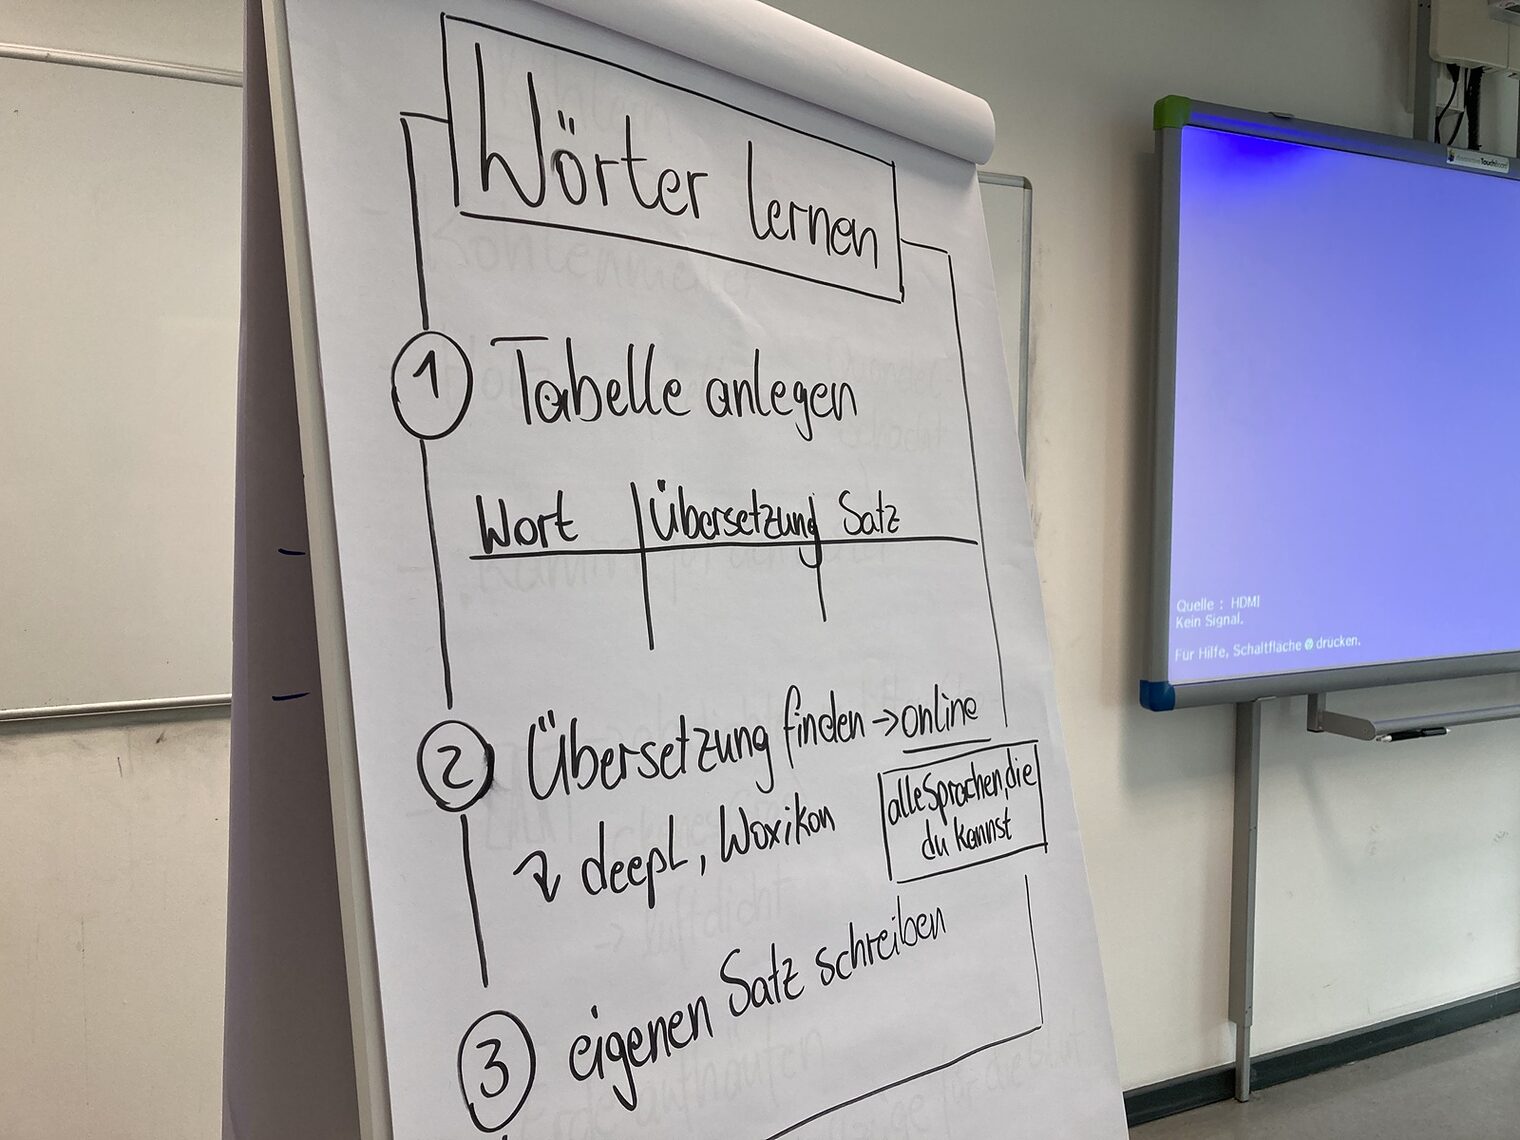 Wörter lernen
1 Tabelle anlegen
Wort Übersetzung Satz
2 Übersetzung finden → online
alle Sprachen, die
du kannst
deepL, Woxikon
3 eigenen Satz schreiben
Quelle : HDMI
Kein Signal.
Für Hilfe, Schaltfläche drücken.